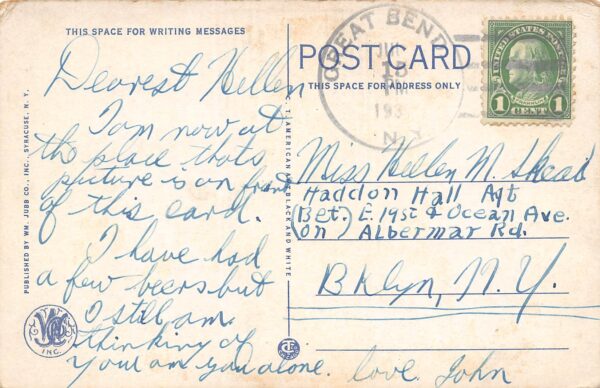 THIS SPACE FOR WRITING MESSAGES
Dearest Hellen
I am now at
the place thats
picture is on front
of this card.
I have had
a few beers but
I still am
thinking of
you am you alone. love John
PUBLISHED BY WM. JUBB CO., INC., SYRACUSE, N. Y.
INC.
C. T. AMERICAN ART BLACK AND WHITE
POST CARD
THIS SPACE FOR ADDRESS ONLY
GREAT BEND
193
N.Y.
UNITED STATES POSTAGE
FRANKLIN
1 1
CENT
Miss Hellen M. Skead
Haddon Hall Apt
(Bet. E. 19st & Ocean Ave.
(on) Albermar Rd.
Bklyn, N.Y.